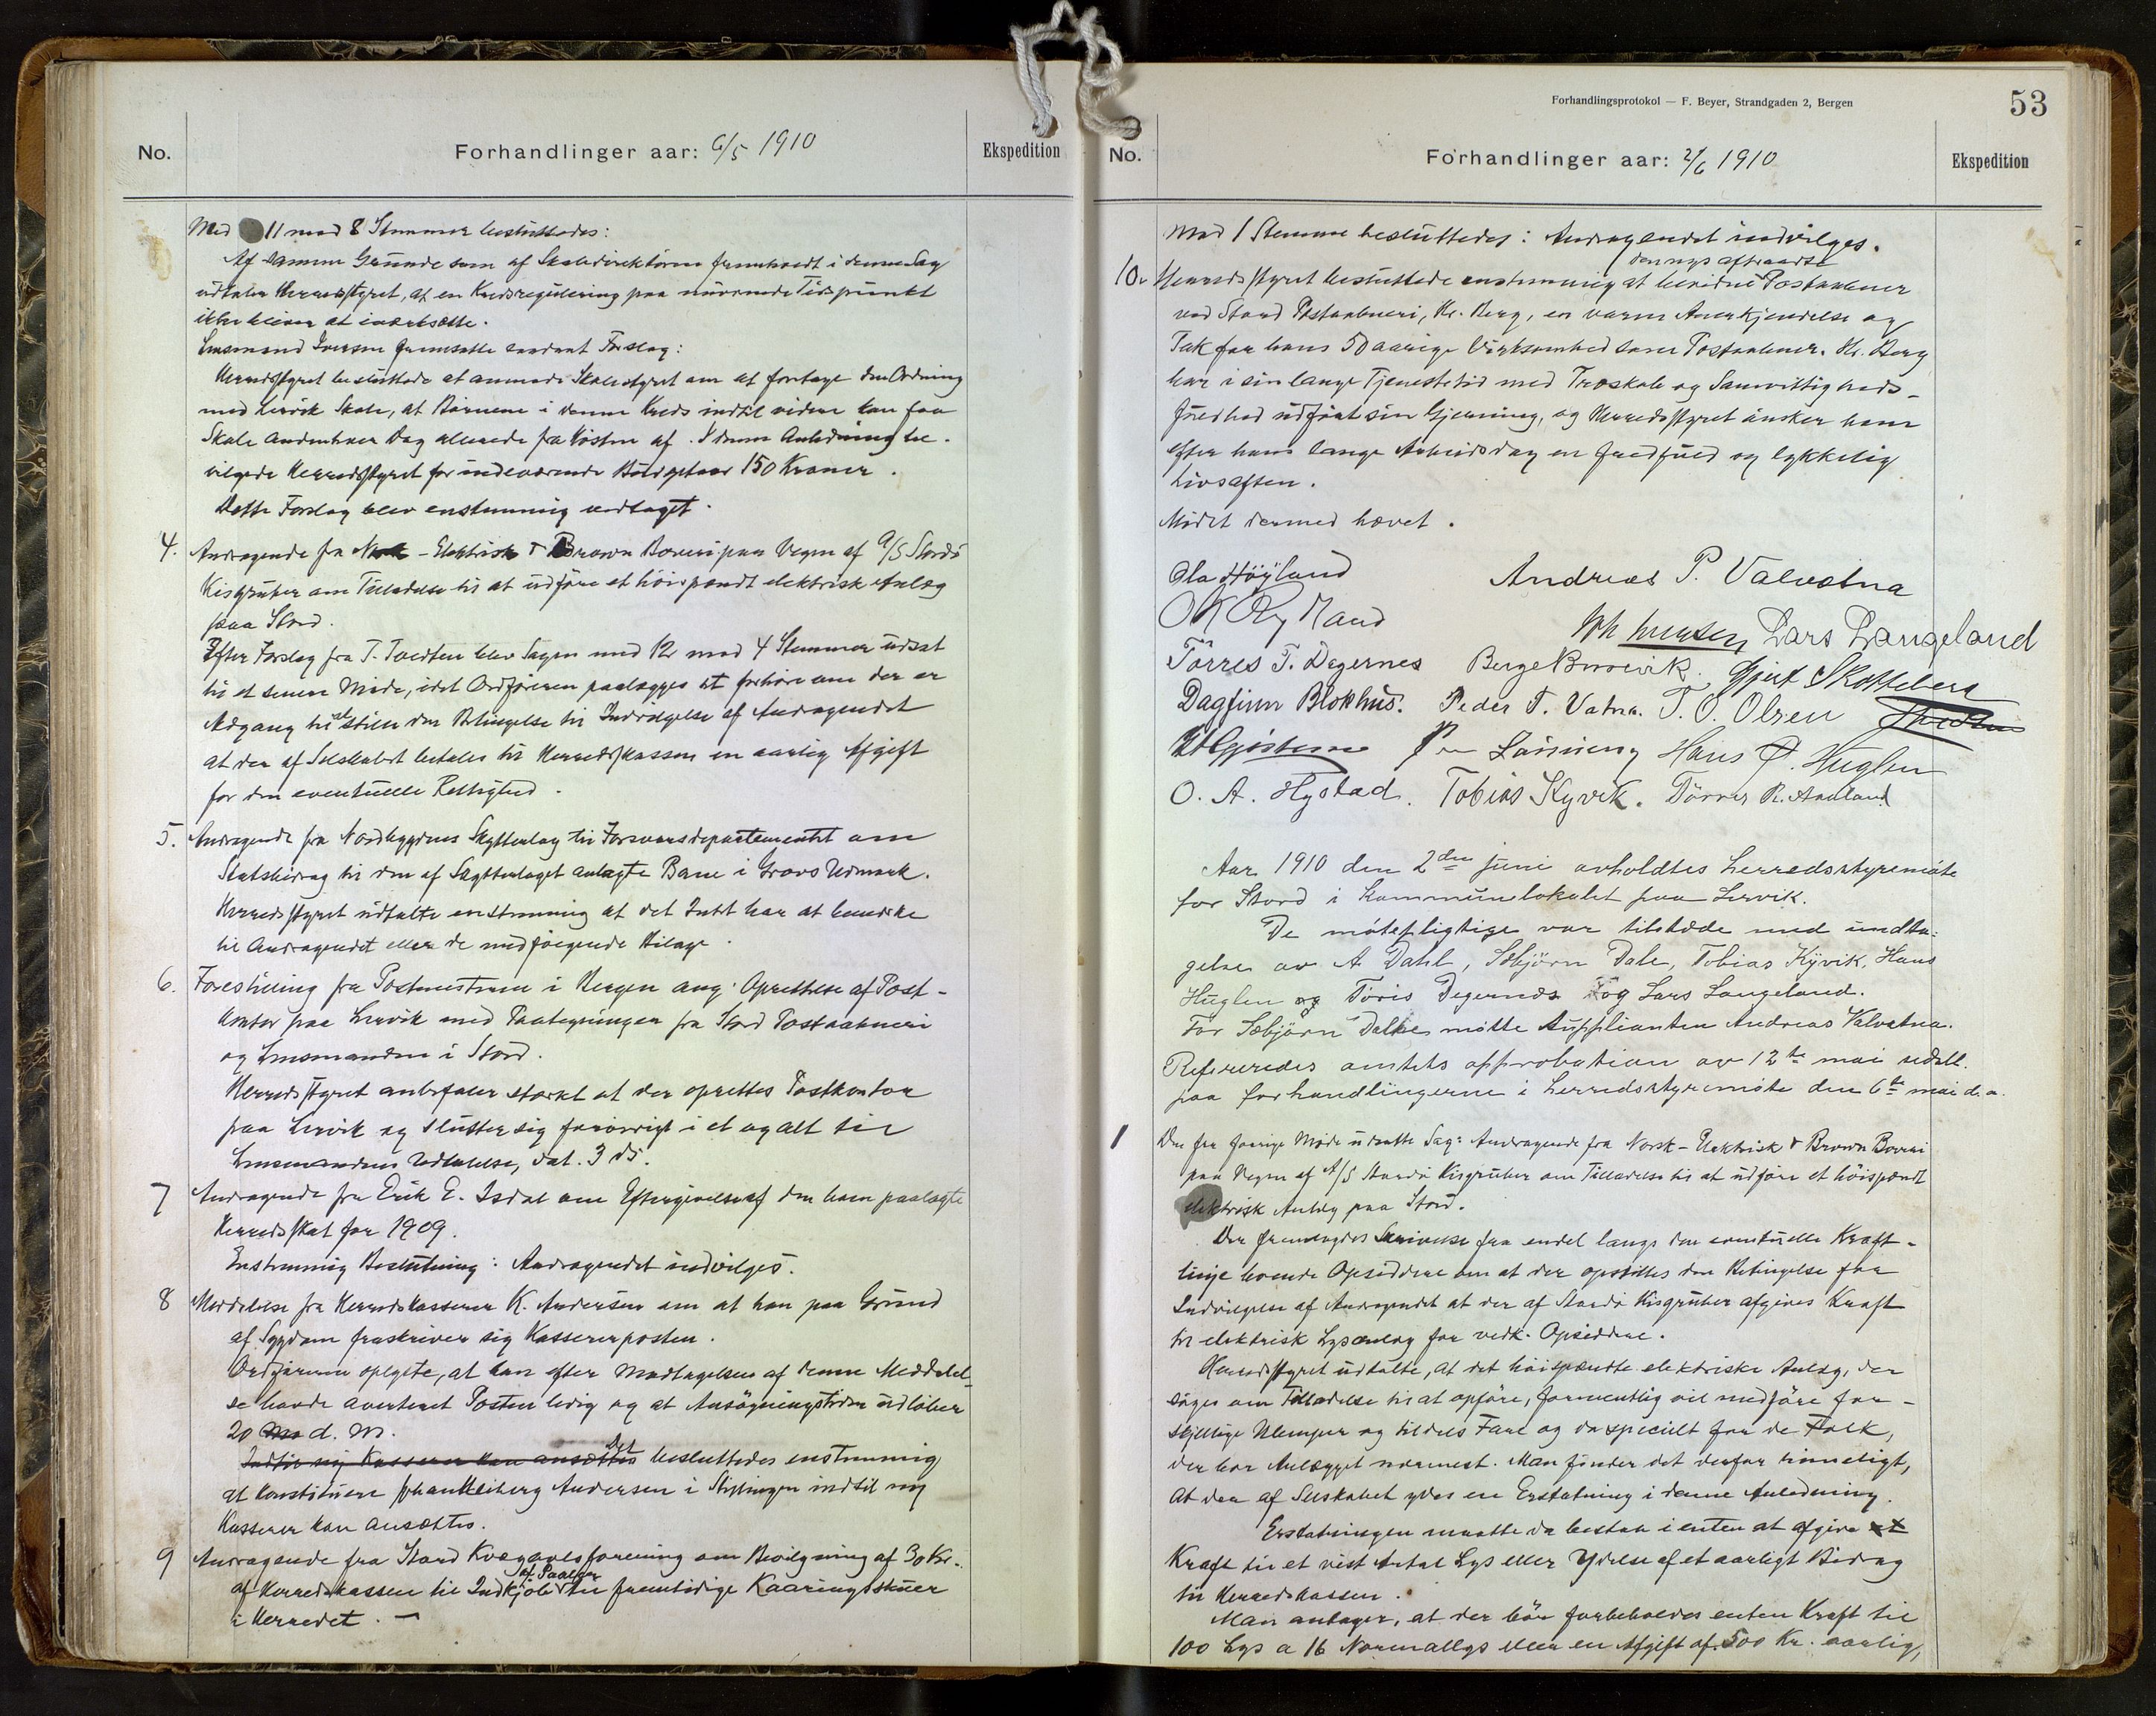 No.
Forhandlinger aar: 6/5 1910
Ekspedition
Med 11 mod 8 Stemmer besluttedes:
Af samme Grunde som af Skoledirektören fremholdt i denne Sag
udtaler Herredsstyret, at en Kredsregulering paa nuværende Tidspunkt
ikke bliver at iværksætte.
Lensmand Iversen fremsatte saadant Forslag:
Herredsstyret besluttede at anmode Skolestyret om at foretage den Ordning
med Lervik Skole, at Börnene i denne Kreds indtil videre kan faa
Skole andenhver Dag allerede fra Hösten af. I denne Anledning be-
vilgede Herredsstyret for indeværende Budgetaar 150 Kroner.
Dette Forslag blev enstemmig vedtaget.
4. Andragende fra Norsk-Elektrisk & Brown Boveri paa Vegne af A/S Stordö
Kisgruber om Tilladelse til at udföre et höispændt elektrisk Anlæg
paa Stord.
Efter Forslag fra T. Tvedten blev Sagen med 12 mod 4 Stemmer udsat
til et senere Möde, idet Ordföreren paalægges at forhöre om der er
Adgang til at stille den Betingelse til Indvilgelse af Andragendet
at der af Selskabet betales til Herredskassen en aarlig Afgift
for den eventuelle Rettighed.
5. Andragende fra Nordbygdens Skytterlag til Forsvarsdepartementet om
Statsbidrag til den af Skytterlaget anlagte Bane i Grovs Udmark.
Herredsstyret udtalte enstemmig at det Intet har at bemerke
til Andragendet eller de medfölgende Bilage.
6. Forestilling fra Postmesteren i Bergen ang. Oprettelse af Post-
kontor paa Lervik med Paategninger fra Stord Postaabneri
og Lensmanden i Stord.
Herredsstyret anbefaler stærkt at der oprettes Postkontor
paa Lervik og slutter sig forövrigt i et og alt til
Lensmandens Udtalelse, dat. 3 ds.
7 Andragende fra Erik E. Isdal om Eftergivelse af den ham paalagte
Herredsskat for 1909.
Enstemmig Beslutning: Andragendet indvilges.
8 Meddelelse fra Herredskasserer K. Andersen om at han paa Grund
af Sygdom fraskriver sig Kassererposten.
Ordföreren oplyste, at han efter Modtagelsen af denne Meddelel-
se havde averteret Posten ledig og at Ansögningstiden udlöber
20 d. M.
Indtil ny Kasserer kan ansættes Det besluttedes enstemmig
at konstituere Johan Heiberg Andersen i Stillingen indtil ny
Kasserer kan ansættes.
9 Andragende fra Stord Kvægavlsforening om Bevilgning af 30 Kr.
af Herredskassen til Indkjöb af Paaler til fremtidige Kaaringsskuer
i Herredet. —
Forhandlingsprotokol — F. Beyer, Strandgaden 2, Bergen
53
No.
Forhandlinger aar: 2/6 1910
Ekspedition
Mod 1 Stemme besluttedes: Andragendet indvilges.
10. Herredsstyret besluttede enstemmig at bevidne den nys aftraadte Postaabner
ved Stord Postaabneri, Hr. Berg, en varm Anerkjendelse og
Tak for hans 50 aarige Virksomhed som Postaabner. Hr. Berg
har i sin lange Tjenestetid med Troskab og Samvittigheds-
fuldhed udfört sin Gjerning, og Herredsstyret önsker ham
efter hans lange Arbeidsdag en fredfuld og lykkelig
Livsaften.
Mödet dermed hævet.
Ola Höyland Andreas P. Valvatna
Joh Iversen Lars Langeland
Törres T. Degernes Berge Borevik. Gjert Skotteberg
Dagfinn Blokhus. Peder T. Vatna. T. O. Olsen
Hans Ø. Huglen
O. A. Hystad. Tobias Kyvik. Törres R. Aadland
Aar 1910 den 2den juni avholdtes herredsstyremöte
for Stord i kommunelokalet paa Lervik.
De mötepligtige var tilstede med undta-
gelse av A Dahl, Sæbjörn Dale, Tobias Kyvik, Hans
Huglen og Töris Degernes og Lars Langeland.
For Sæbjörn Dale mötte suppleanten Andreas Valvatna.
Refereredes amtets approbation av 12te mai sidstl.
paa forhandlingerne i herredsstyremöte den 6te mai d. a.
1 Den fra forrige Möde udsatte Sag: Andragende fra Norsk-Elektrisk & Brown Boveri
paa Vegne af A/S Stordö Kisgruber om Tilladelse til at udföre et höispændt
elektrisk Anlæg paa Stord.
Der fremlagdes Skrivelse fra endel langs den eventuelle Kraft-
linje boende Opsiddere om at der opstilles den Betingelse for
Indvilgelse af Andragendet at der af Stordö Kisgruber afgives Kraft
til elektrisk Lysanlæg for vedk. Opsiddere.
Herredsstyret udtalte, at det höispændte elektriske Anlæg, der
söges om Tilladelse til at opföre, formentlig vil medföre for-
skjellige Ulemper og tildels Fare og da specielt for de Folk,
der bor Anlægget nærmest. Man finder det derfor rimeligt,
at der af Selskabet ydes en Erstatning i denne Anledning.
Erstatningen maatte da bestaa i enten at afgive
Kraft til et vist Antal Lys eller Ydelse af et aarligt Bidrag
til Herredskassen.
Man antager, at der bör forbeholdes enten Kraft til
100 Lys a 16 Normallys eller en Afgift af 500 Kr. aarlig,